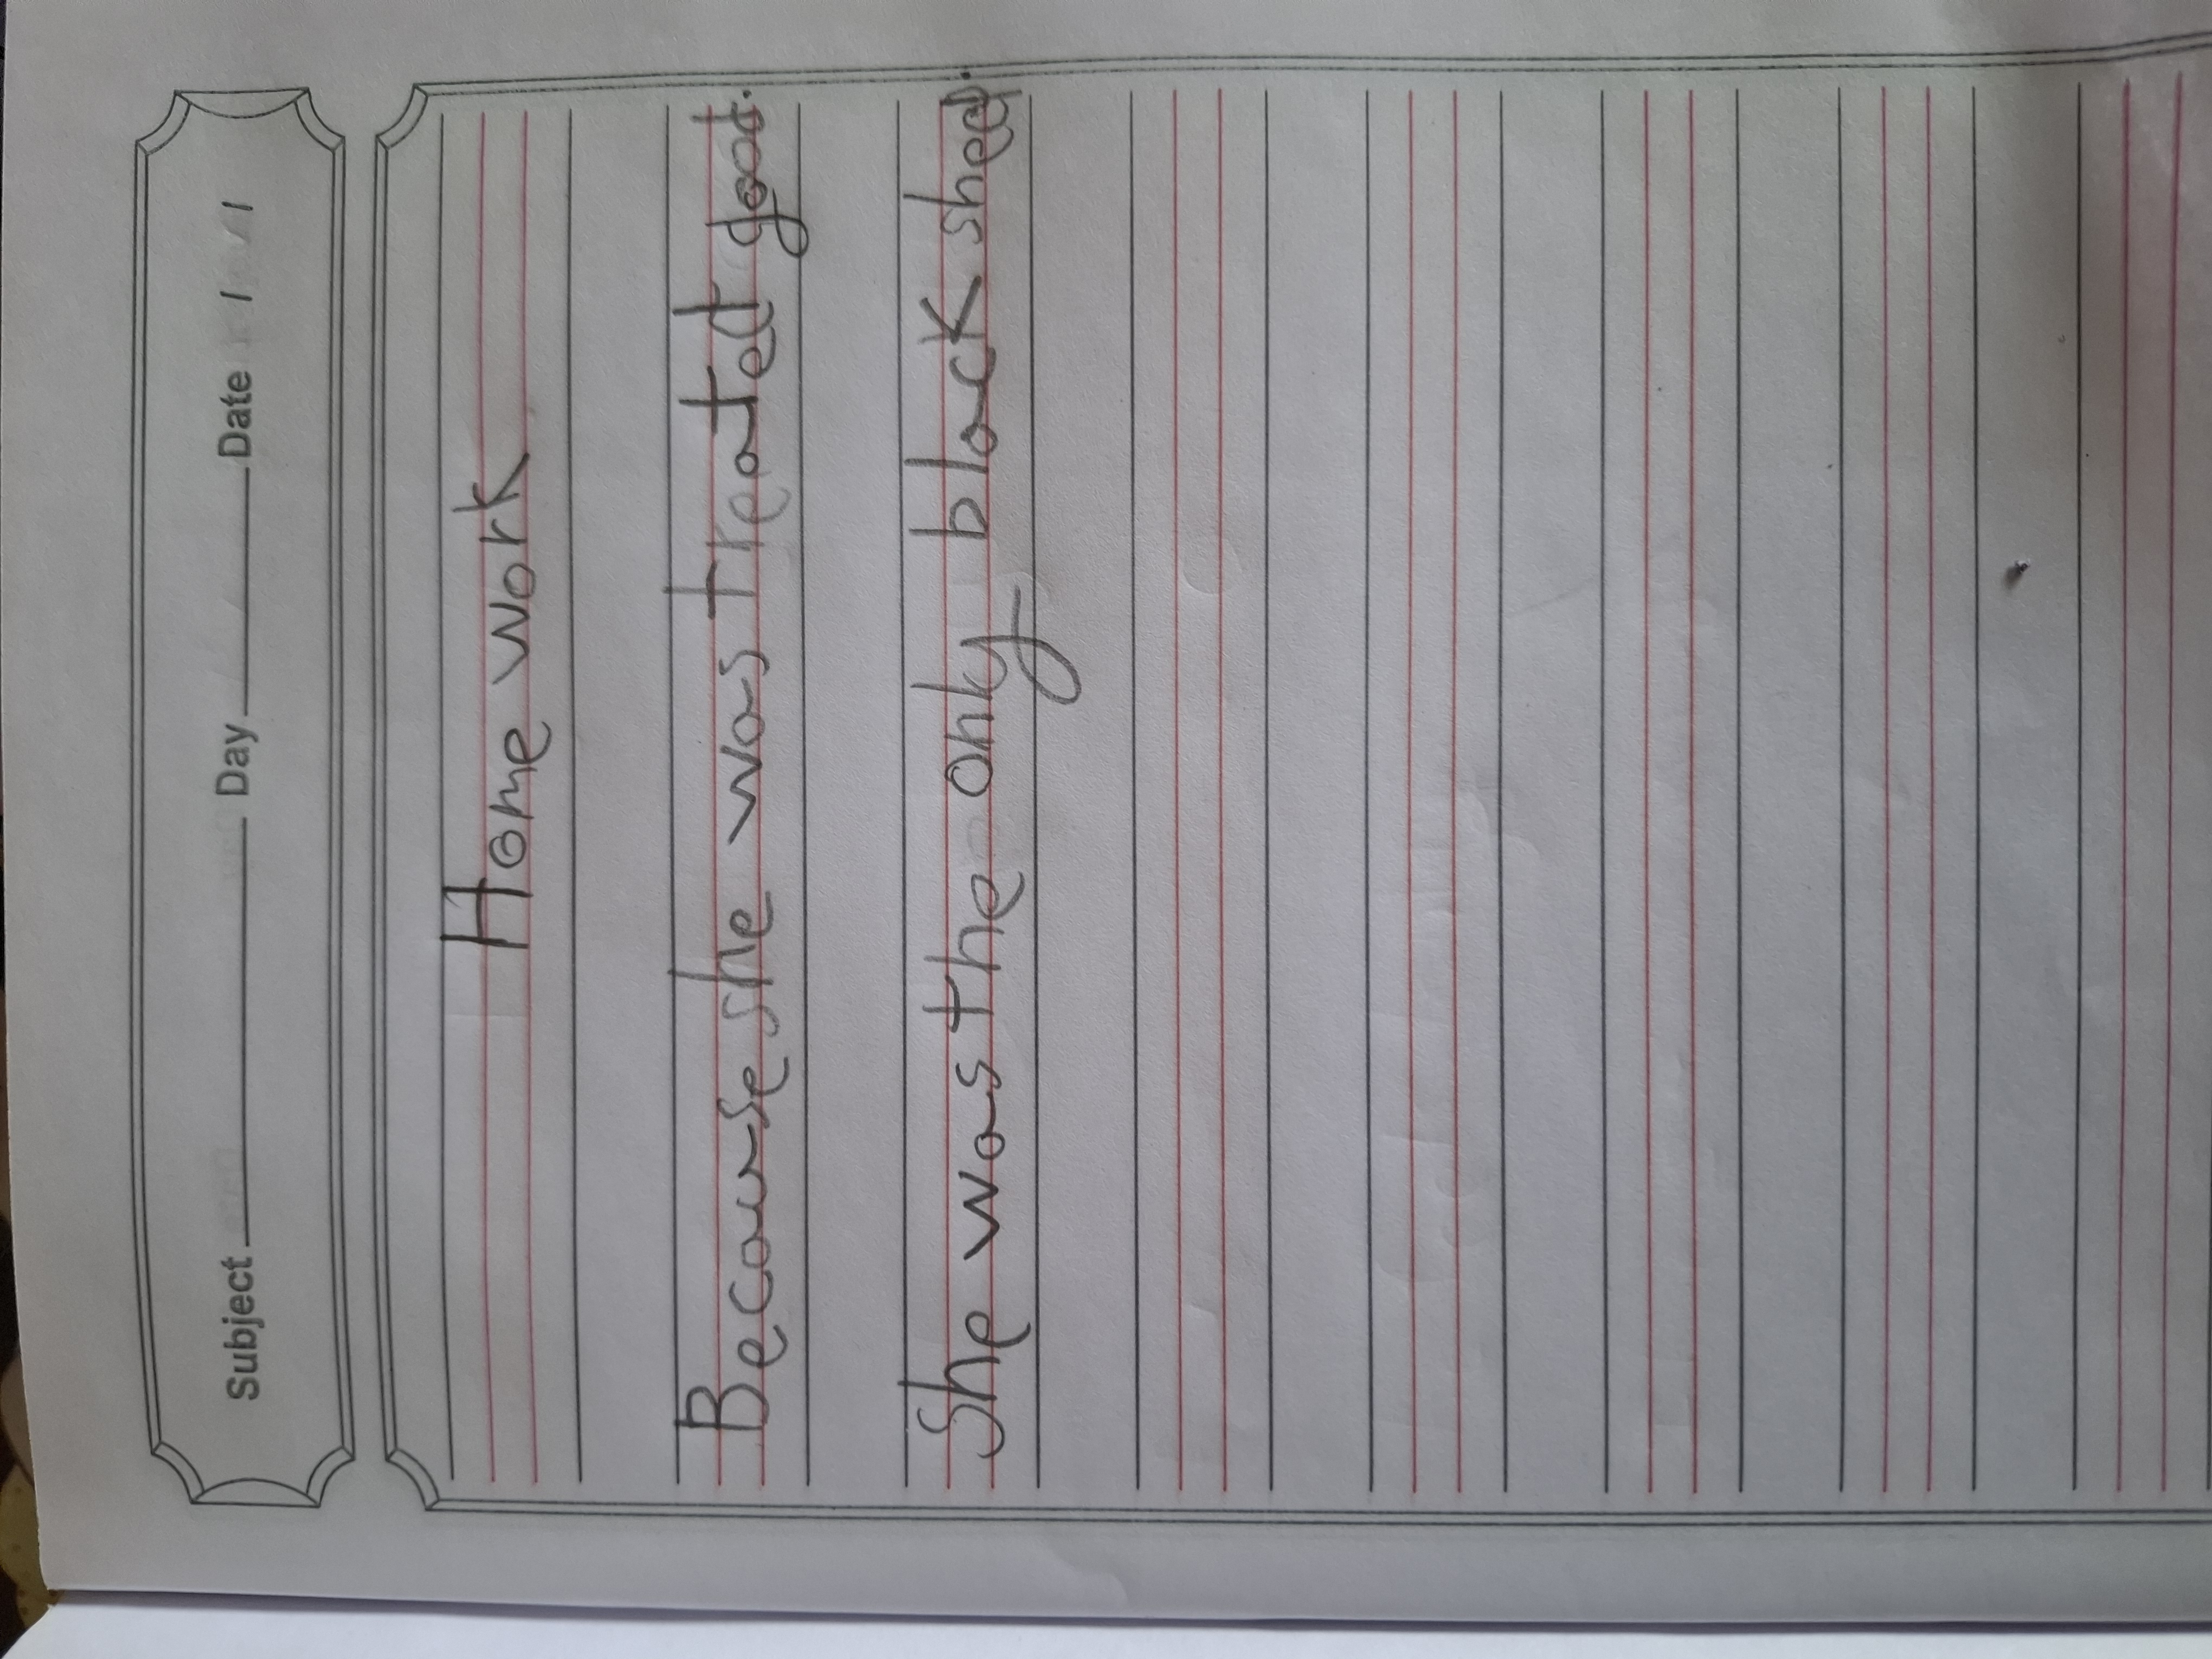 Subject Day Date / /
Home work
Because she was treated goat.
She was the only black sheep.